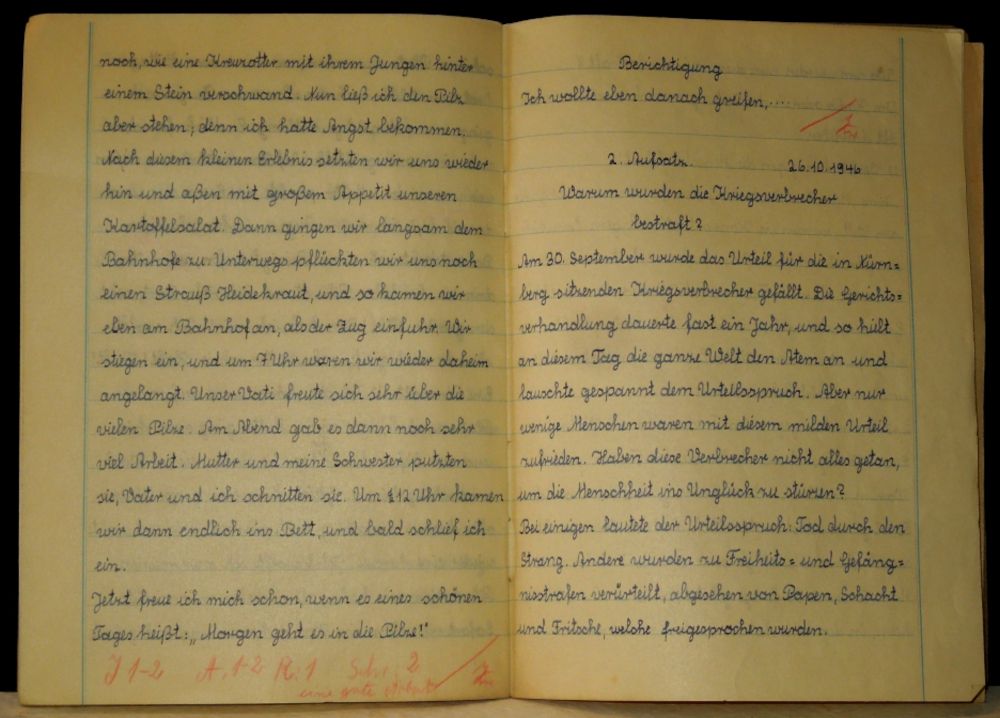 noch, wie eine Kreuzotter mit ihrem Jungen hinter
einem Stein verschwand. Nun ließ ich den Pilz
aber stehen; denn ich hatte Angst bekommen.
Nach diesem kleinen Erlebnis setzten wir uns wieder
hin und aßen mit großem Appetit unseren
Kartoffelsalat. Dann gingen wir langsam dem
Bahnhofe zu. Unterwegs pflückten wir uns noch
einen Strauß Heidekraut, und so kamen wir
eben am Bahnhof an, als der Zug einfuhr. Wir
stiegen ein, und um 7 Uhr waren wir wieder daheim
angelangt. Unser Vati freute sich sehr über die
vielen Pilze. Am Abend gab es dann noch sehr
viel Arbeit. Mutter und meine Schwester putzten
sie, Vater und ich schnitten sie. Um ½ 12 Uhr kamen
wir dann endlich ins Bett, und bald schlief ich
ein.
Jetzt freue ich mich schon, wenn es eines schönen
Tages heißt: „Morgen geht es in die Pilze!"
J 1-2 A. 1-2 R. 1 Schr. 2
eine gute Arbeit
Berichtigung
Ich wollte eben danach greifen,....
2. Aufsatz. 26.10.1946
Warum wurden die Kriegsverbrecher
bestraft?
Am 30. September wurde das Urteil für die in Nürn=
berg sitzenden Kriegsverbrecher gefällt. Die Gerichts=
verhandlung dauerte fast ein Jahr, und so hielt
an diesem Tag die ganze Welt den Atem an und
lauschte gespannt dem Urteilsspruch. Aber nur
wenige Menschen waren mit diesem milden Urteil
zufrieden. Haben diese Verbrecher nicht alles getan,
um die Menschheit ins Unglück zu stürzen?
Bei einigen lautete der Urteilsspruch: Tod durch den
Strang. Andere wurden zu Freiheits= und Gefäng=
nisstrafen verurteilt, abgesehen von Papen, Schacht
und Fritsche, welche freigesprochen wurden.